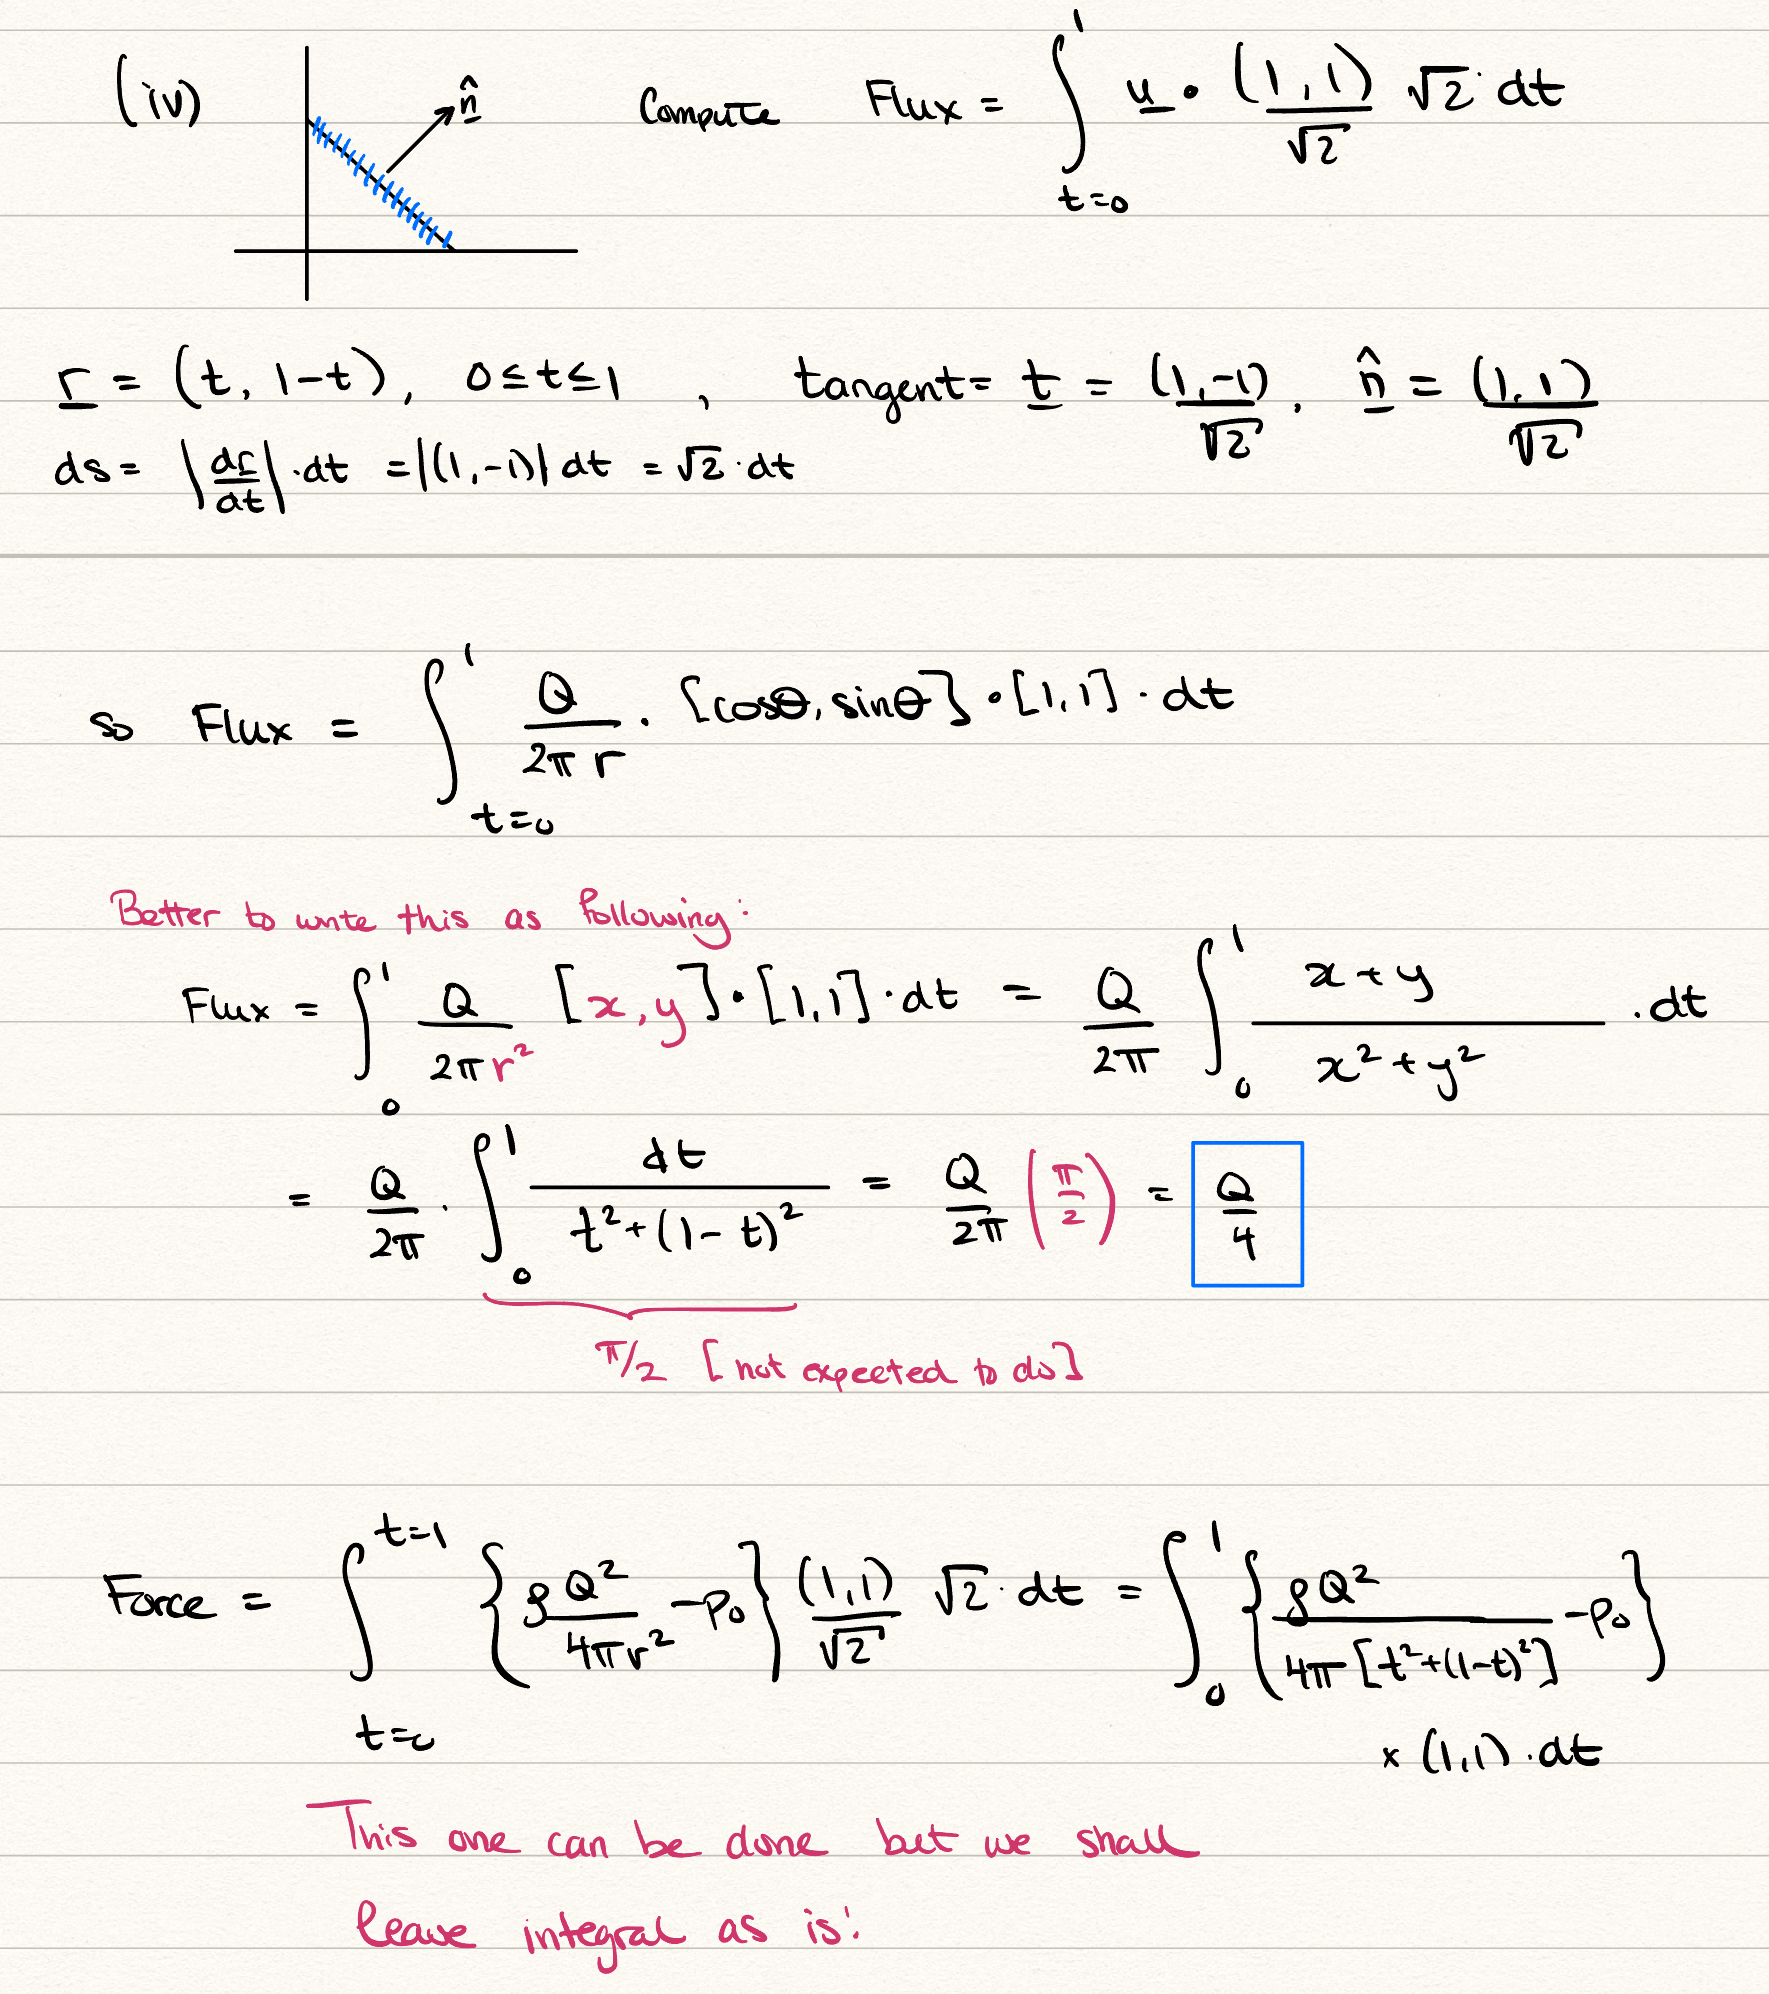 (iv) n̂ Compute Flux = ∫_{t=0}^{1} u • (1,1)/√2 √2 · dt
r = (t, 1-t), 0≤t≤1 , tangent = t = (1,-1)/√2 , n̂ = (1,1)/√2
ds = |dr/dt| · dt = |(1,-1)| dt = √2 · dt
so Flux = ∫_{t=0}^{1} Q/2πr · [cosθ, sinθ] • [1,1] · dt
Better to write this as following:
Flux = ∫_0^1 Q/2πr² [x,y] • [1,1] · dt = Q/2π ∫_0^1 (x+y)/(x²+y²) · dt
= Q/2π · ∫_0^1 dt/(t²+(1-t)²) = Q/2π (π/2) = Q/4
π/2 [not expected to do]
Force = ∫_{t=0}^{t=1} {ρQ²/4πr² - p₀} (1,1)/√2 √2 · dt = ∫_0^1 {ρQ²/4π[t²+(1-t)²] - p₀}
× (1,1) · dt
This one can be done but we shall
leave integral as is!